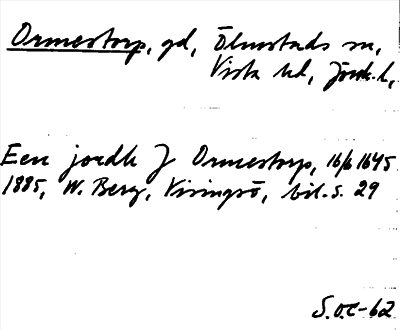 Ormestorp, gd, Ölmstads sn,
Vista hd, Jönk. l,
Een jordh J Ormestorp, 16/6 1645
1885, W. Berg, Visingsö, bil. s. 29
S.O.C-62